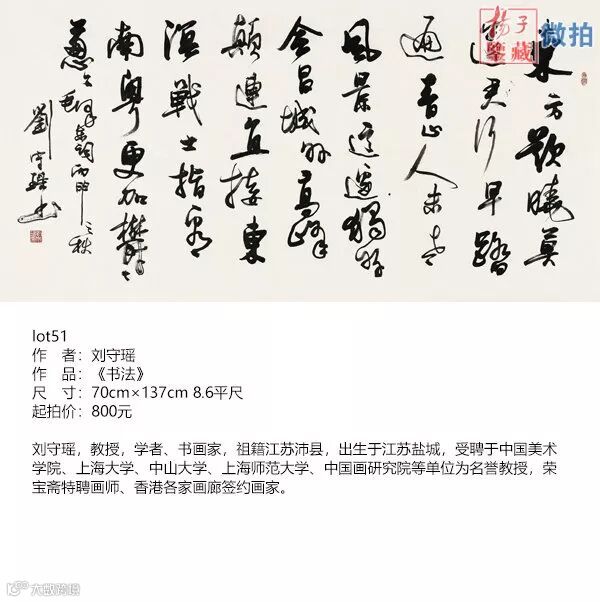 東方欲曉莫
道君行早踏
遍青山人未老
風景這邊獨好
會昌城外高峰
顛連直接東
溟戰士指看
南粵更加鬱々
蔥々毛澤東詞丙申之秋
劉守瑤書
揚子
鑒藏
微拍
lot51
作 者：刘守瑶
作 品：《书法》
尺 寸：70cm×137cm 8.6平尺
起拍价：800元
刘守瑶，教授，学者、书画家，祖籍江苏沛县，出生于江苏盐城，受聘于中国美术
学院、上海大学、中山大学、上海师范大学、中国画研究院等单位为名誉教授，荣
宝斋特聘画师、香港各家画廊签约画家。
大数跨境